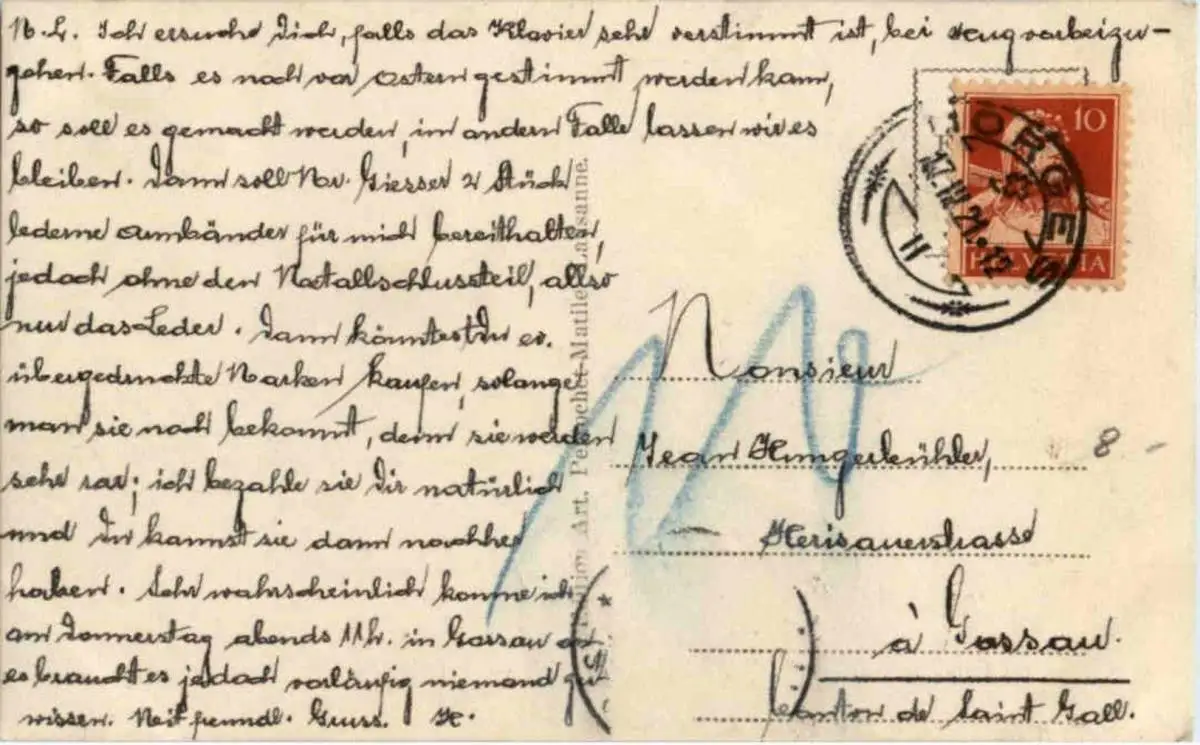 M.L. Ich ersuche Dich, falls das Klavier sehr verstimmt ist, bei Haug vorbeizu-
gehen. Falls es noch vor Ostern gestimmt werden kann,
so soll es gemacht werden, im andern Falle lassen wir es
bleiben. Dann soll Mr. Giesser 2 Stück
lederne Armbänder für mich bereithalten,
jedoch ohne den Metallschlussteil, allso
nur das Leder. Dann könntest Du ev.
übergedruckte Marken kaufen, solange
man sie noch bekommt, denn sie werden
sehr rar; ich bezahle sie Dir natürlich
und Du kannst sie dann nachher
haben. Sehr wahrscheinlich komme ich
am Donnerstag abends 11h. in Gossau an
es braucht es jedoch vorläufig niemand zu
wissen. Mit freundl. Gruss. H.
Art. Perrochet-Matile, Lausanne.
10
HELVETIA
MORGES
III.21.-12
Monsieur
Jean Hungerbühler,
Herisauerstrasse
à Gossau.
Canton de Saint Gall.
8 -